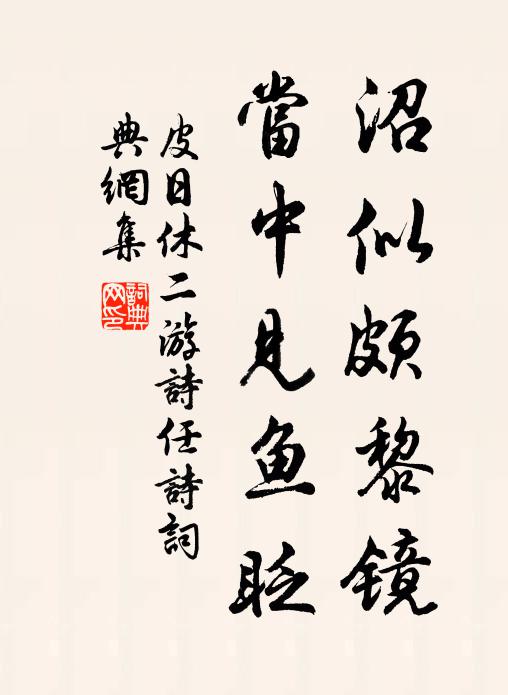 沼似頗黎镜
當中見鱼眨
皮日休二游詩任詩詞
典網集
詞典网印